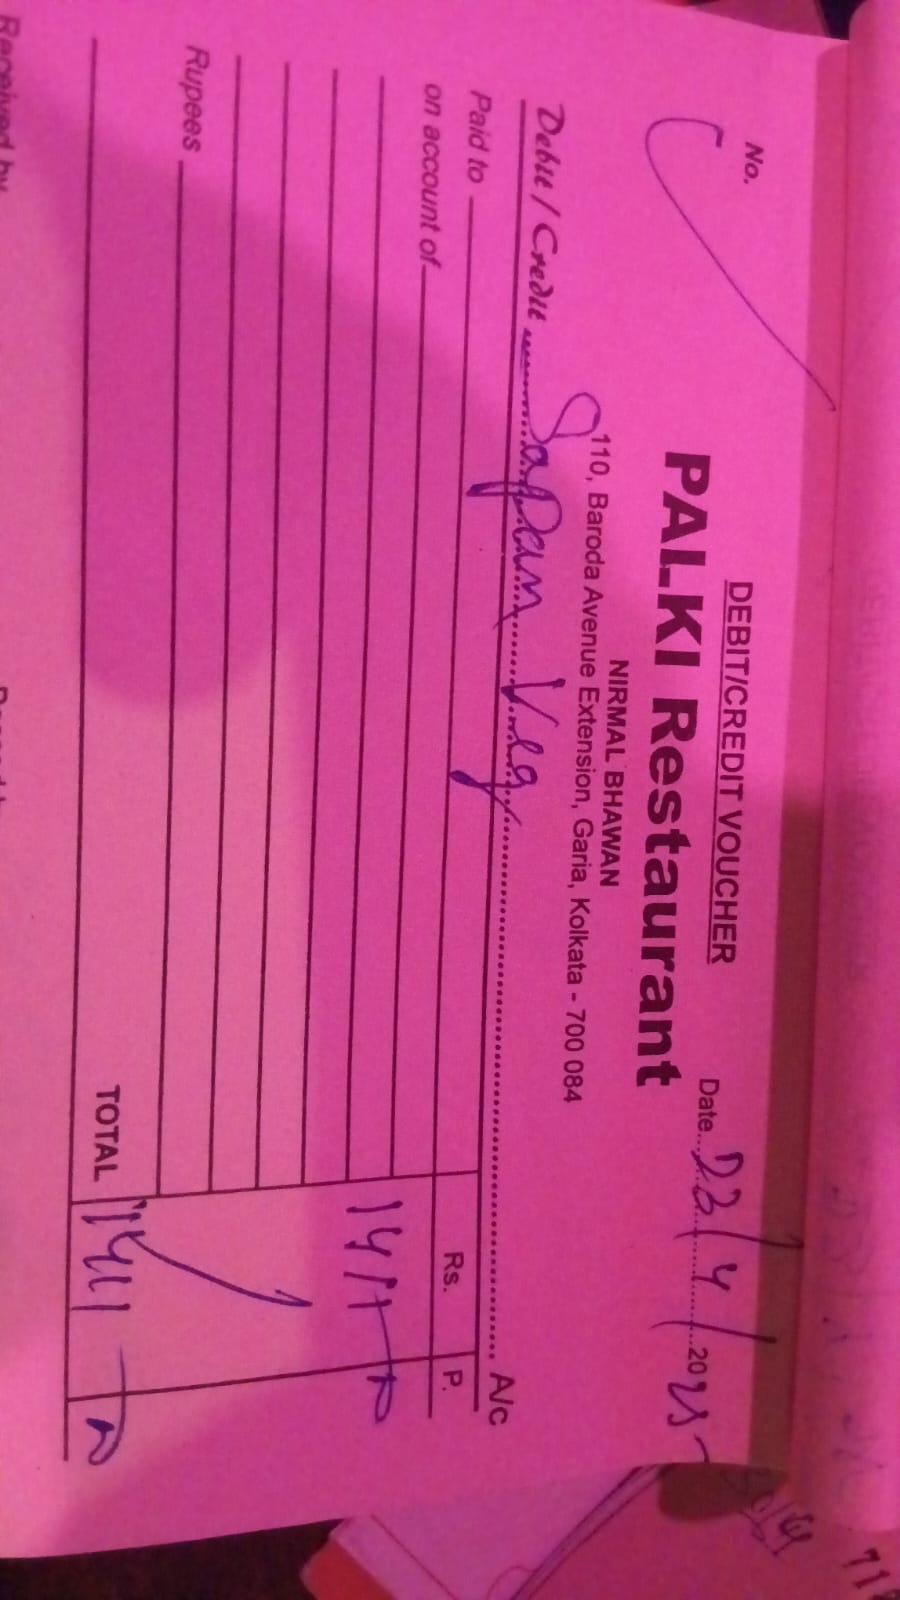 DEBIT/CREDIT VOUCHER
No.
Date...23/4/2025
PALKI Restaurant
NIRMAL BHAWAN
110, Baroda Avenue Extension, Garia, Kolkata - 700 084
Debit / Credit Sapan Veg A/c
Paid to
on account of
Rs. P.
Rupees
TOTAL
Received by